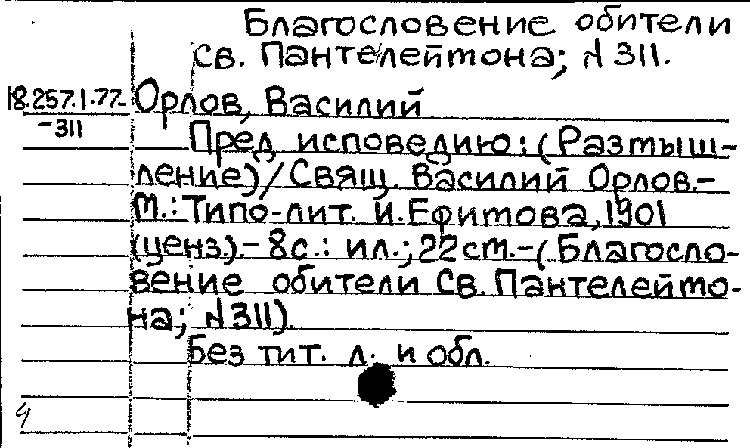 Благословение обители
Св. Пантелеймона; № 311.
18.257.1.77-311
Орлов, Василий
Пред исповедию: (Размыш-
ление) / Свящ. Василий Орлов.-
М.: Типо-лит. И. Ефимова, 1901
(ценз).- 8 с.: ил.; 22 см.-(Благосло-
вение обители Св. Пантелеймо-
на; № 311).
Без тит. л. и обл.